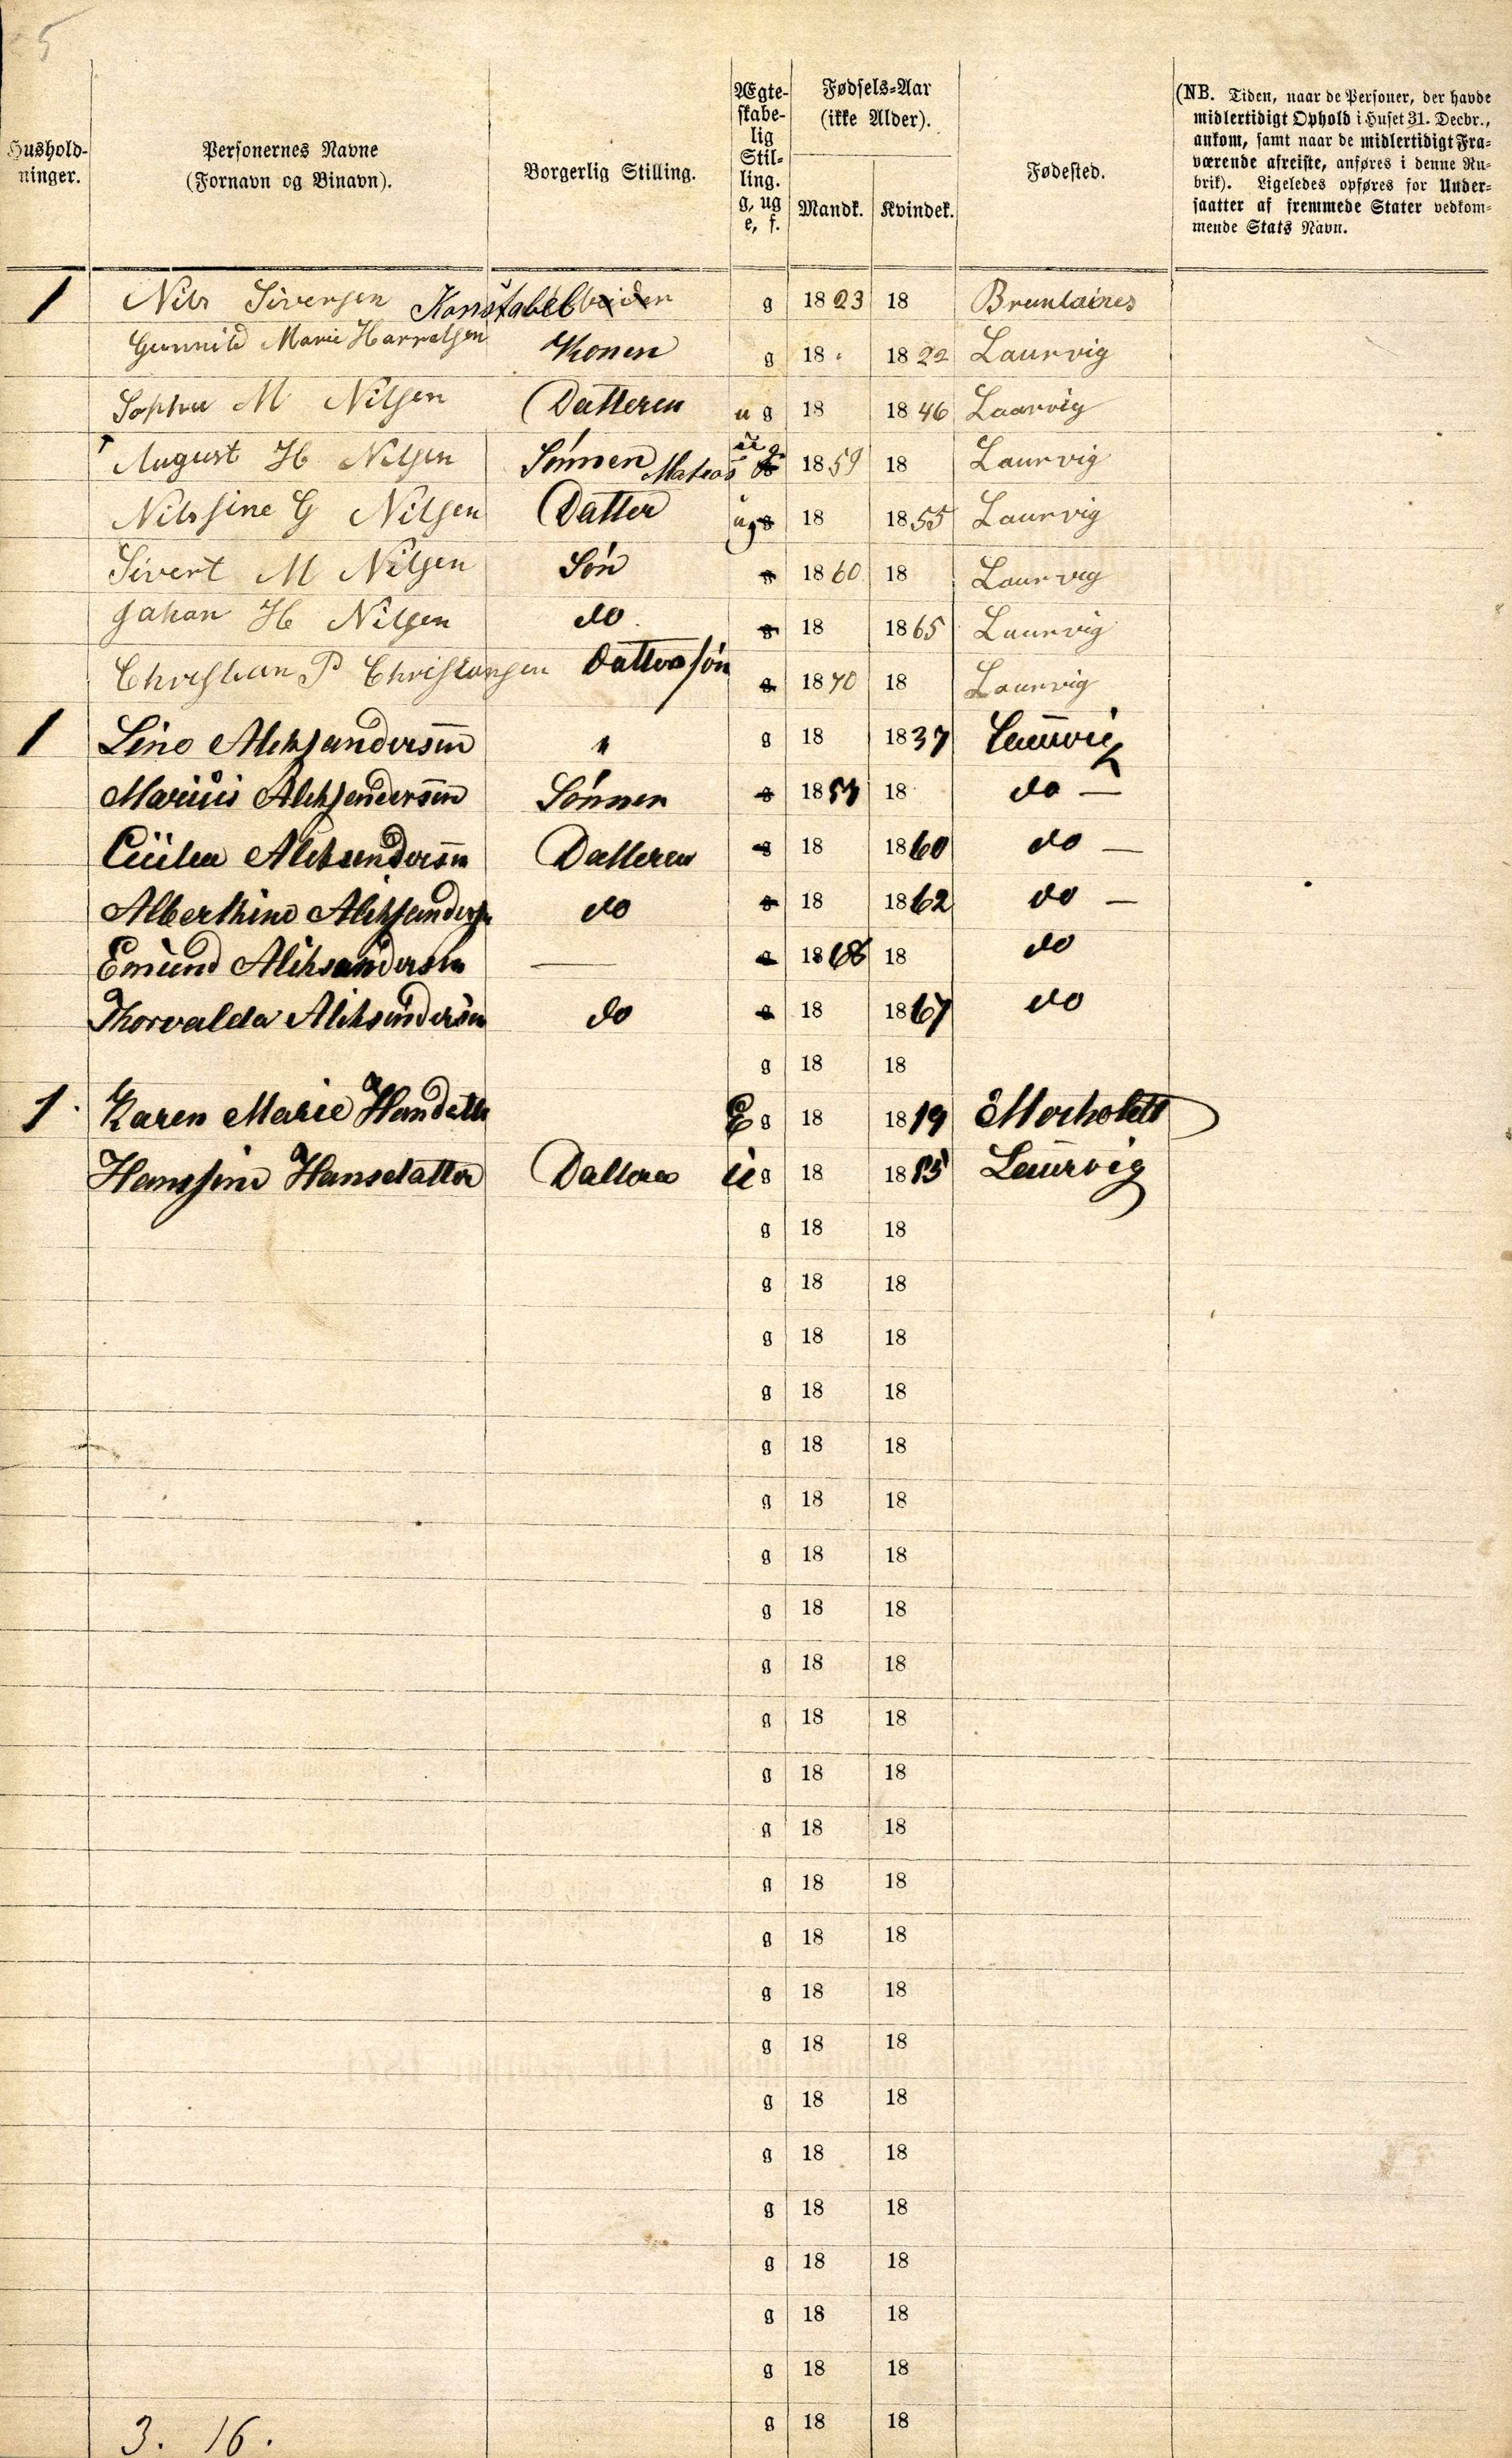 5
Hushold-
ninger.
Personernes Navne
(Fornavn og Binavn).
Borgerlig Stilling.
Ægte-
skabe-
lig
Stil-
ling.
g, ug
e, f.
Fødsels-Aar
(ikke Alder).
Mandk. Kvindek.
Fødested.
(NB. Tiden, naar de Personer, der havde
midlertidigt Ophold i Huset 31. Decbr.,
ankom, samt naar de midlertidigt Fra-
værende afreiste, anføres i denne Ru-
brik). Ligeledes opføres for Under-
saatter af fremmede Stater vedkom-
mende Stats Navn.
1 Nils Siversen Konstabel g 1823 18 Brunlarnes
Gunnild Marie Konen g 18 1822 Laurvig
Sophie M Nilsen Datteren u g 18 1846 Laurvig
August H Nilsen Sønnen Matros u g 1859 18 Laurvig
Nilssine G Nilsen Datter ug 18 1855 Laurvig
Sivert M Nilsen Søn g 1860 18 Laurvig
Johan H Nilsen do g 18 1865 Laurvig
Christian P Christiansen Dattersøn g 1870 18 Laurvig
1 Line Aleksandersen " g 18 1837 Laurvig
Marius Aleksandersen Sønnen g 18 18 do —
Aleksandersen Datteren g 18 1860 do —
Alberthine Aleksanders do g 18 1862 do —
Emund Aleksandersen — g 1868 18 do
Thorvalda Aleksandersen do g 18 1867 do
g 18 18
1. Karen Marie E g 18 1819
Hanssine Hansdatter Datteren u g 18 1855 Laurvig
g 18 18
g 18 18
g 18 18
g 18 18
g 18 18
g 18 18
g 18 18
g 18 18
g 18 18
g 18 18
g 18 18
g 18 18
g 18 18
g 18 18
g 18 18
g 18 18
g 18 18
g 18 18
g 18 18
g 18 18
g 18 18
g 18 18
g 18 18
3. 16.